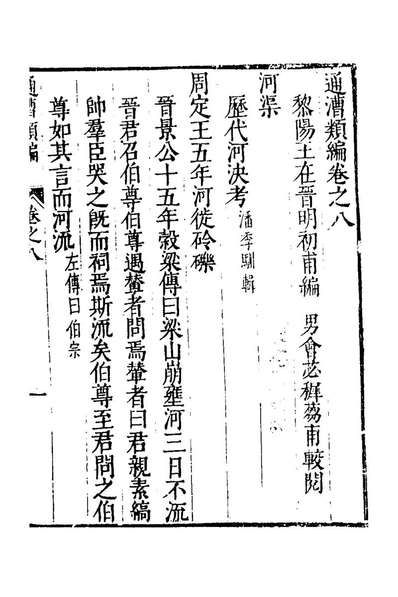 通漕類編卷之八
黎陽王在晉明初甫編 男會苾穉芴甫較閱
河渠
歷代河決考 潘季馴輯
周定王五年河徙砱礫
晉景公十五年穀梁傳曰梁山崩壅河三日不流
晉君召伯尊伯尊遇輦者問焉輦者曰君親素縞
帥羣臣哭之旣而祠焉斯流矣伯尊至君問之伯
尊如其言而河流 左傳曰伯宗
通漕類編 卷之八 一